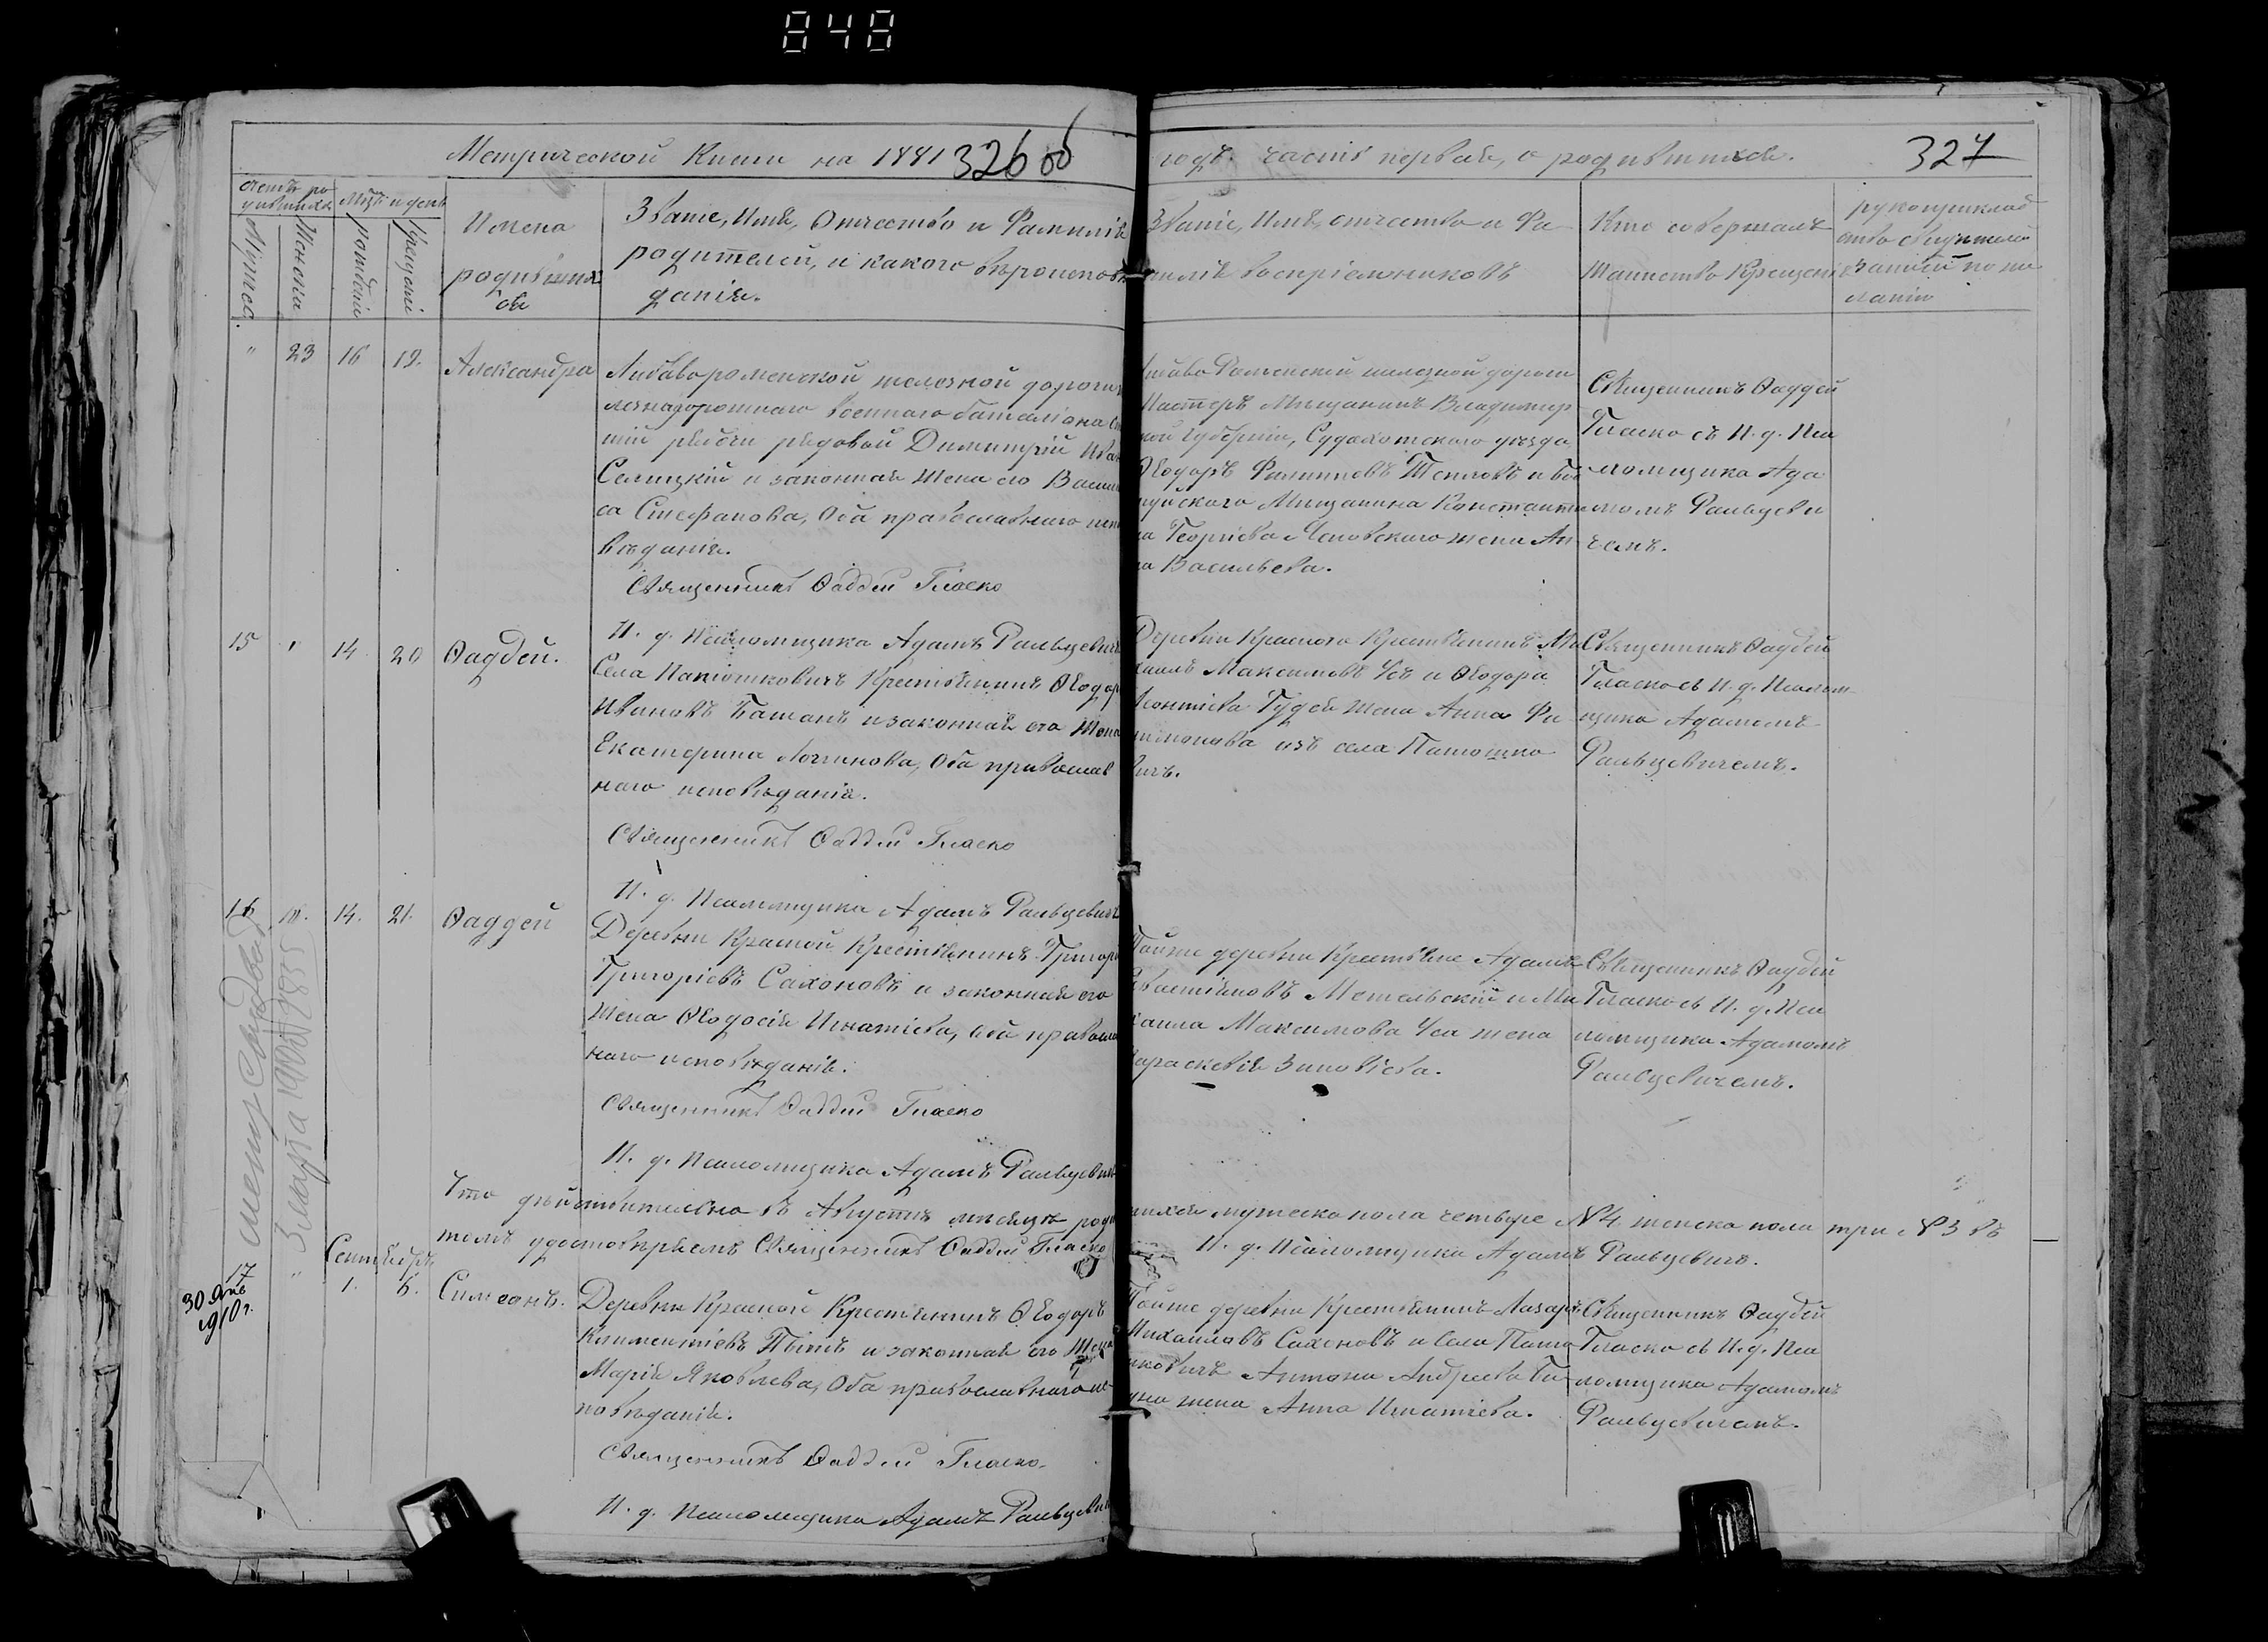 848
Метрической Книги на 1881
326 об
годъ. часть первая, о родившихся.
327
Счетъ ро
дившихся
Мцъ и день
Мужеска.
Женска
рожденія
Крещенія
Имена
родивших
ся
Званіе, Имя, Отчество и Фамилія
родителей, и какого вѣроисповѣ
данія.
Званіе, Имя, отчество и Фа
милія воспріемниковъ
Кто совершалъ
Таинство Крещенія
рукоприклад
ство свидѣтелей
записи по же
ланію
" 23 16 19. Александра
Либаво роменской железной дороги
железнодорожнаго военнаго баталіона
рядовой Димитрій
Селицкій и законная жена его Васи
са Стефанова, Оба православнаго испо
вѣданія.
Священникъ Ѳаддей Гласко
И. д. Псаломщика Адамъ Ральцевичъ
Либаво Роменской железной дороги
Мастеръ Мѣщанинъ Владимир
ской губерніи, Судоготскаго уѣзда
Ѳеодоръ Филиповъ Тепловъ и Боб
руйскаго Мѣщанина Константи
на Георгіева жена Ан
на Васильева.
Священникъ Ѳаддей
Гласко съ И. д. Пса
ломщика Ада
момъ Ральцеви
чемъ.
15 " 14 20 Ѳаддей.
Села Патюшковичъ Крестьянинъ Ѳеодоръ
Ивановъ Баганъ и законная его жена
Екатерина Логинова, Оба православ
наго исповѣданія.
Священникъ Ѳаддей Гласко
И. д. Псаломщика Адамъ Ральцевичъ
Деревни Красного Крестьянинъ Ми
хаилъ Максимовъ Усъ и Ѳеодора
Леонтіева Гудея жена Анна Фи
изъ села Патюшко
вичъ.
Священникъ Ѳаддей
Гласко съ И. д. Псалом
щика Адамомъ
Ральцевичемъ.
16 " 14. 21. Ѳаддей
Деревни Красной Крестьянинъ Григорій
Григоріевъ Сахоновъ и законная его
жена Ѳеодосія Игнатіева, оба православ
наго исповѣданія.
Священникъ Ѳаддей Гласко
И. д. Псаломщика Адамъ Ральцевичъ
Тойже деревни Крестьяне Адамъ
Севастіяновъ Метельскій и Ми
хаила Максимова Уса жена
Параскевія Зиновіева.
Священникъ Ѳаддей
Гласко съ И. д. Пса
ломщика Адамомъ
Ральцевичемъ.
Что дѣйствительно въ Августѣ мѣсяцѣ роди
вшихся мужеска пола четыре №4 женска пола три №3 въ
томъ удостовѣряемъ Священникъ Ѳаддей Гласко
И. д. Псаломщика Адамъ Ральцевичъ.
Сентябрь
17 " 1. 6. Симеонъ.
30 Янв
1910 г.
Деревни Красной Крестьянинъ Ѳеодоръ
Климентіевъ и законная его жена
Марія Яковлева, Оба православнаго ис
повѣданія.
Священникъ Ѳаддей Гласко.
И. д. Псаломщика Адамъ Ральцевичъ
Тойже деревни Крестьянинъ Лазарь
Михаиловъ Сахоновъ и Села Патю
шковичъ Антона Андреева
жена Анна Игнатіева.
Священникъ Ѳаддей
Гласко съ И. д. Пса
ломщика Адамомъ
Ральцевичемъ.